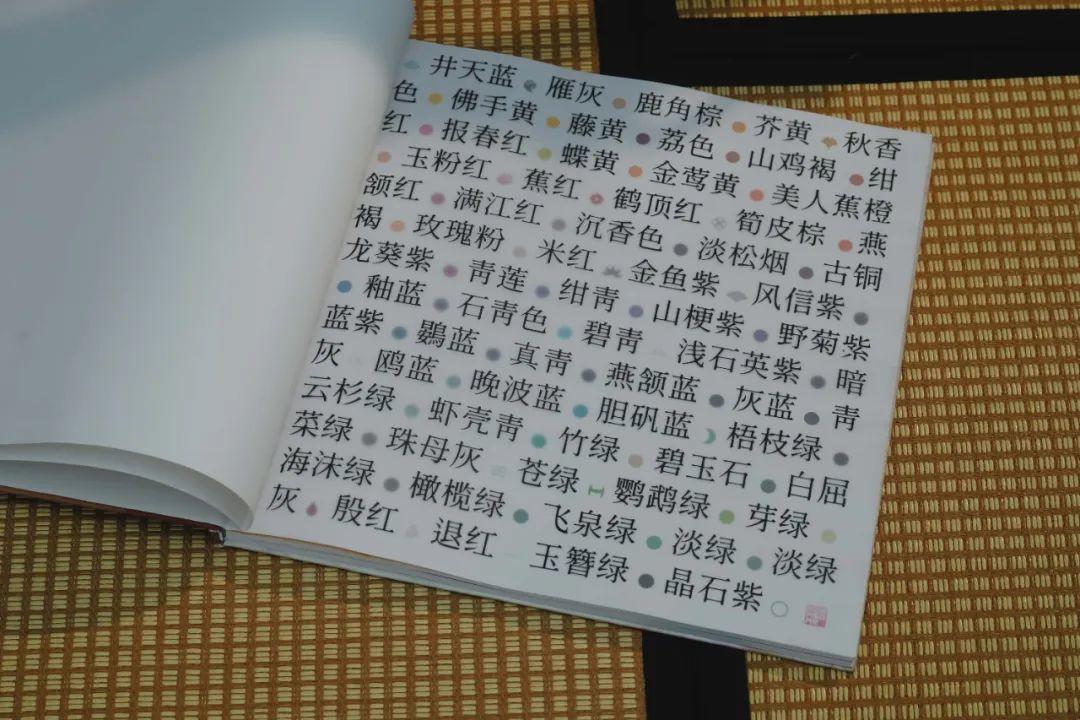 井天蓝 雁灰 鹿角棕 芥黄 秋香
色 佛手黄 藤黄 荔色 山鸡褐 绀
红 报春红 蝶黄 金莺黄 美人蕉橙
玉粉红 蕉红 鹤顶红 筍皮棕 燕
颔红 满江红 沉香色 淡松烟 古铜
褐 玫瑰粉 米红 金鱼紫 风信紫
龙葵紫 青莲 绀青 山梗紫 野菊紫
釉蓝 石青色 碧青 浅石英紫 暗
蓝紫 鷃蓝 真青 燕颔蓝 灰蓝 青
灰 鸥蓝 晚波蓝 胆矾蓝 梧枝绿
云杉绿 虾壳青 竹绿 碧玉石 白屈
菜绿 珠母灰 苍绿 鹦鹉绿 芽绿
海沫绿 橄榄绿 飞泉绿 淡绿 淡绿
灰 殷红 退红 玉簪绿 晶石紫